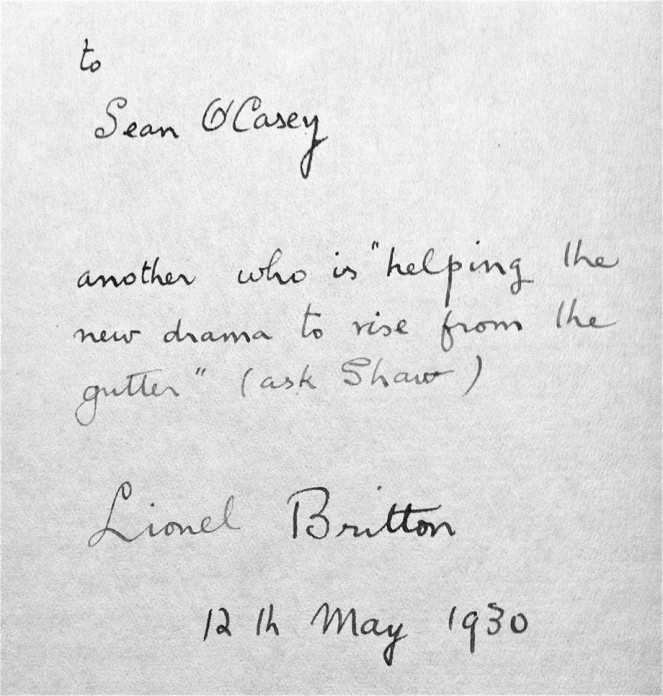 to
Sean O'Casey
another who is "helping the
new drama to rise from the
gutter" (ask Shaw)
Lionel Britton
12th May 1930